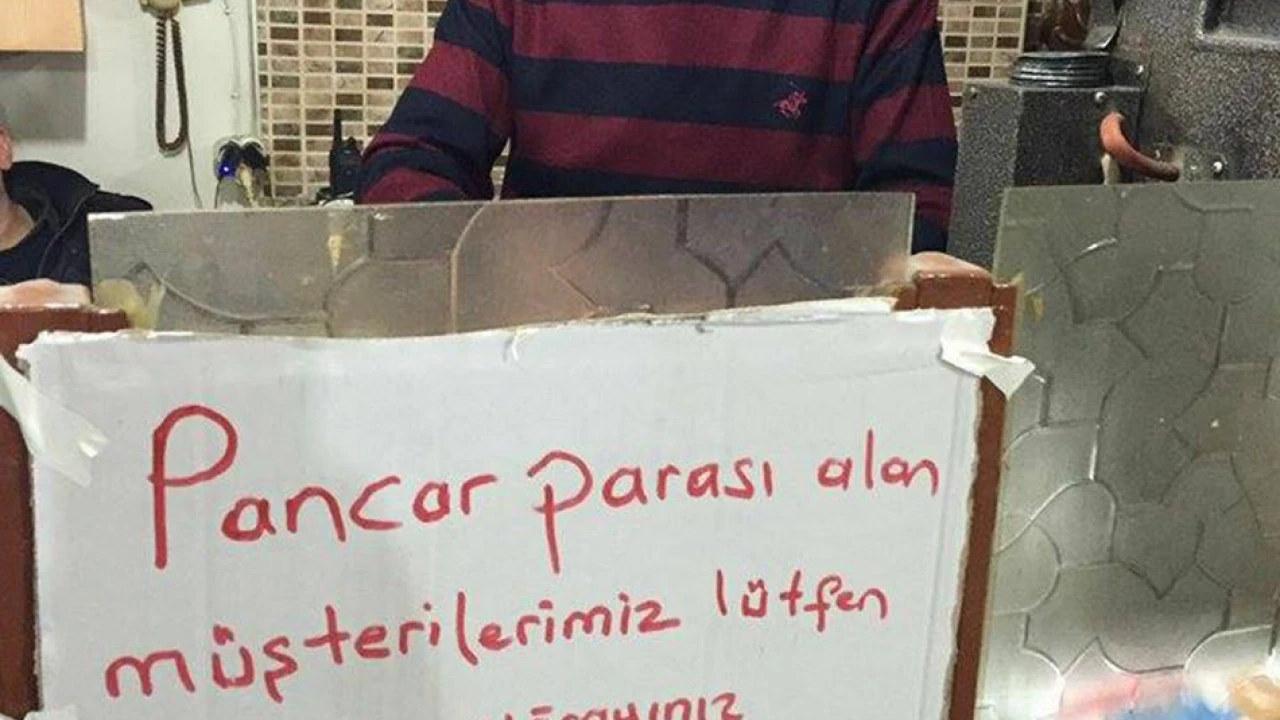 Pancar parası alan
müşterilerimiz lütfen